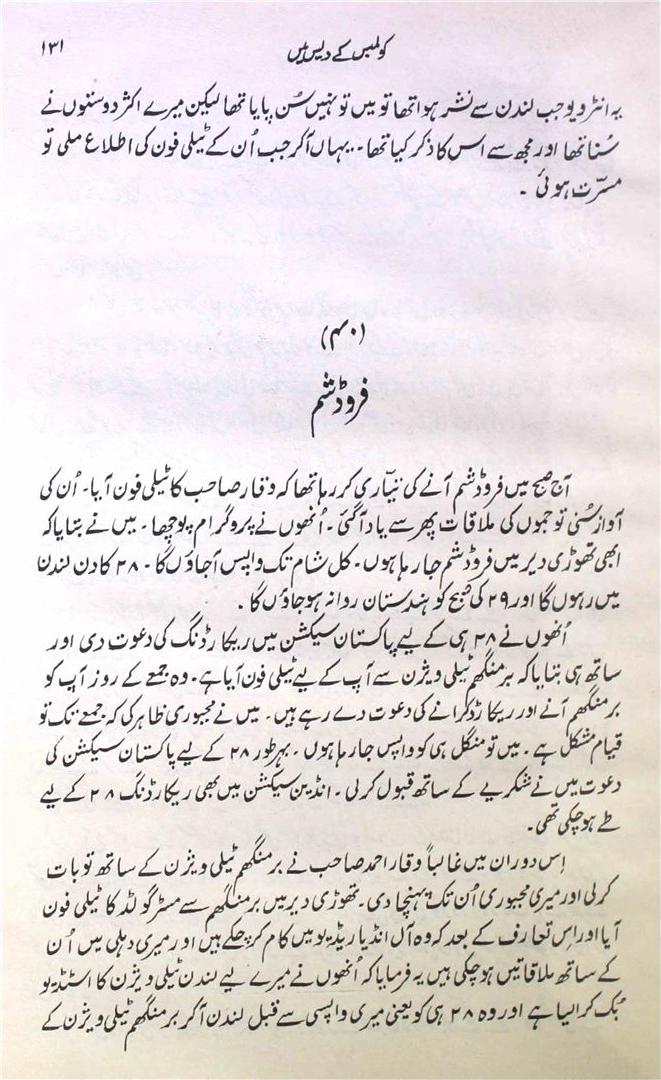 ۱۳۱
کولمبس کے دیس میں
یہ انٹرویو جب لندن سے نشر ہوا تھا تو میں تو نہیں سُن پایا تھا لیکن میرے اکثر دوستوں نے
سُنا تھا اور مجھ سے اس کا ذکر کیا تھا۔ یہاں آکر جب اُن کے ٹیلی فون کی اطلاع ملی تو
مسرّت ہوئی۔
(۴۰)
فروڈشم
آج صبح میں فروڈشم آنے کی تیّاری کر رہا تھا کہ وقار صاحب کا ٹیلی فون آیا۔ اُن کی
آواز سُنی تو جموں کی ملاقات پھر سے یاد آگئی۔ اُنھوں نے پروگرام پوچھا۔ میں نے بتایا کہ
ابھی تھوڑی دیر میں فروڈشم جا رہا ہوں۔ کل شام تک واپس آجاؤں گا۔ ۲۸ کا دن لندن
میں رہوں گا اور ۲۹ کی صبح کو ہندستان روانہ ہو جاؤں گا۔
اُنھوں نے ۲۸ ہی کے لیے پاکستان سیکشن میں ریکارڈنگ کی دعوت دی اور
ساتھ ہی بتایا کہ برمنگھم ٹیلی ویژن سے آپ کے لیے ٹیلی فون آیا ہے۔ وہ جمعے کے روز آپ کو
برمنگھم آنے اور ریکارڈ کرانے کی دعوت دے رہے ہیں۔ میں نے مجبوری ظاہر کی کہ جمعے تک تو
قیام مشکل ہے۔ میں تو منگل ہی کو واپس جا رہا ہوں۔ بہرطور ۲۸ کے لیے پاکستان سیکشن کی
دعوت میں نے شکریے کے ساتھ قبول کرلی۔ انڈین سیکشن میں بھی ریکارڈنگ ۲۸ کے لیے
طے ہو چکی تھی۔
اِس دوران میں غالباً وقار احمد صاحب نے برمنگھم ٹیلی ویژن کے ساتھ تو بات
کرلی اور میری مجبوری اُن تک پہنچا دی۔ تھوڑی دیر میں برمنگھم سے مسٹر گولڈ کا ٹیلی فون
آیا اور اِس تعارف کے بعد کہ وہ آل انڈیا ریڈیو میں کام کر چکے ہیں اور میری دہلی میں اُن
کے ساتھ ملاقاتیں ہو چکی ہیں یہ فرمایا کہ اُنھوں نے میرے لیے لندن ٹیلی ویژن کا اسٹڈیو
بُک کرا لیا ہے اور وہ ۲۸ ہی کو یعنی میری واپسی سے قبل لندن آکر برمنگھم ٹیلی ویژن کے